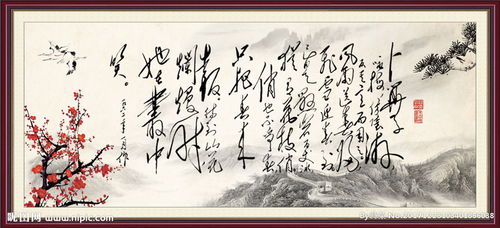 卜算子
风雨送春归
飞雪迎春到
已是悬崖百丈冰
犹有花枝俏
俏也不争春
只把春来
报 待到山花
烂熳时
她在叢中
笑。
昵图网 www.nipic.com